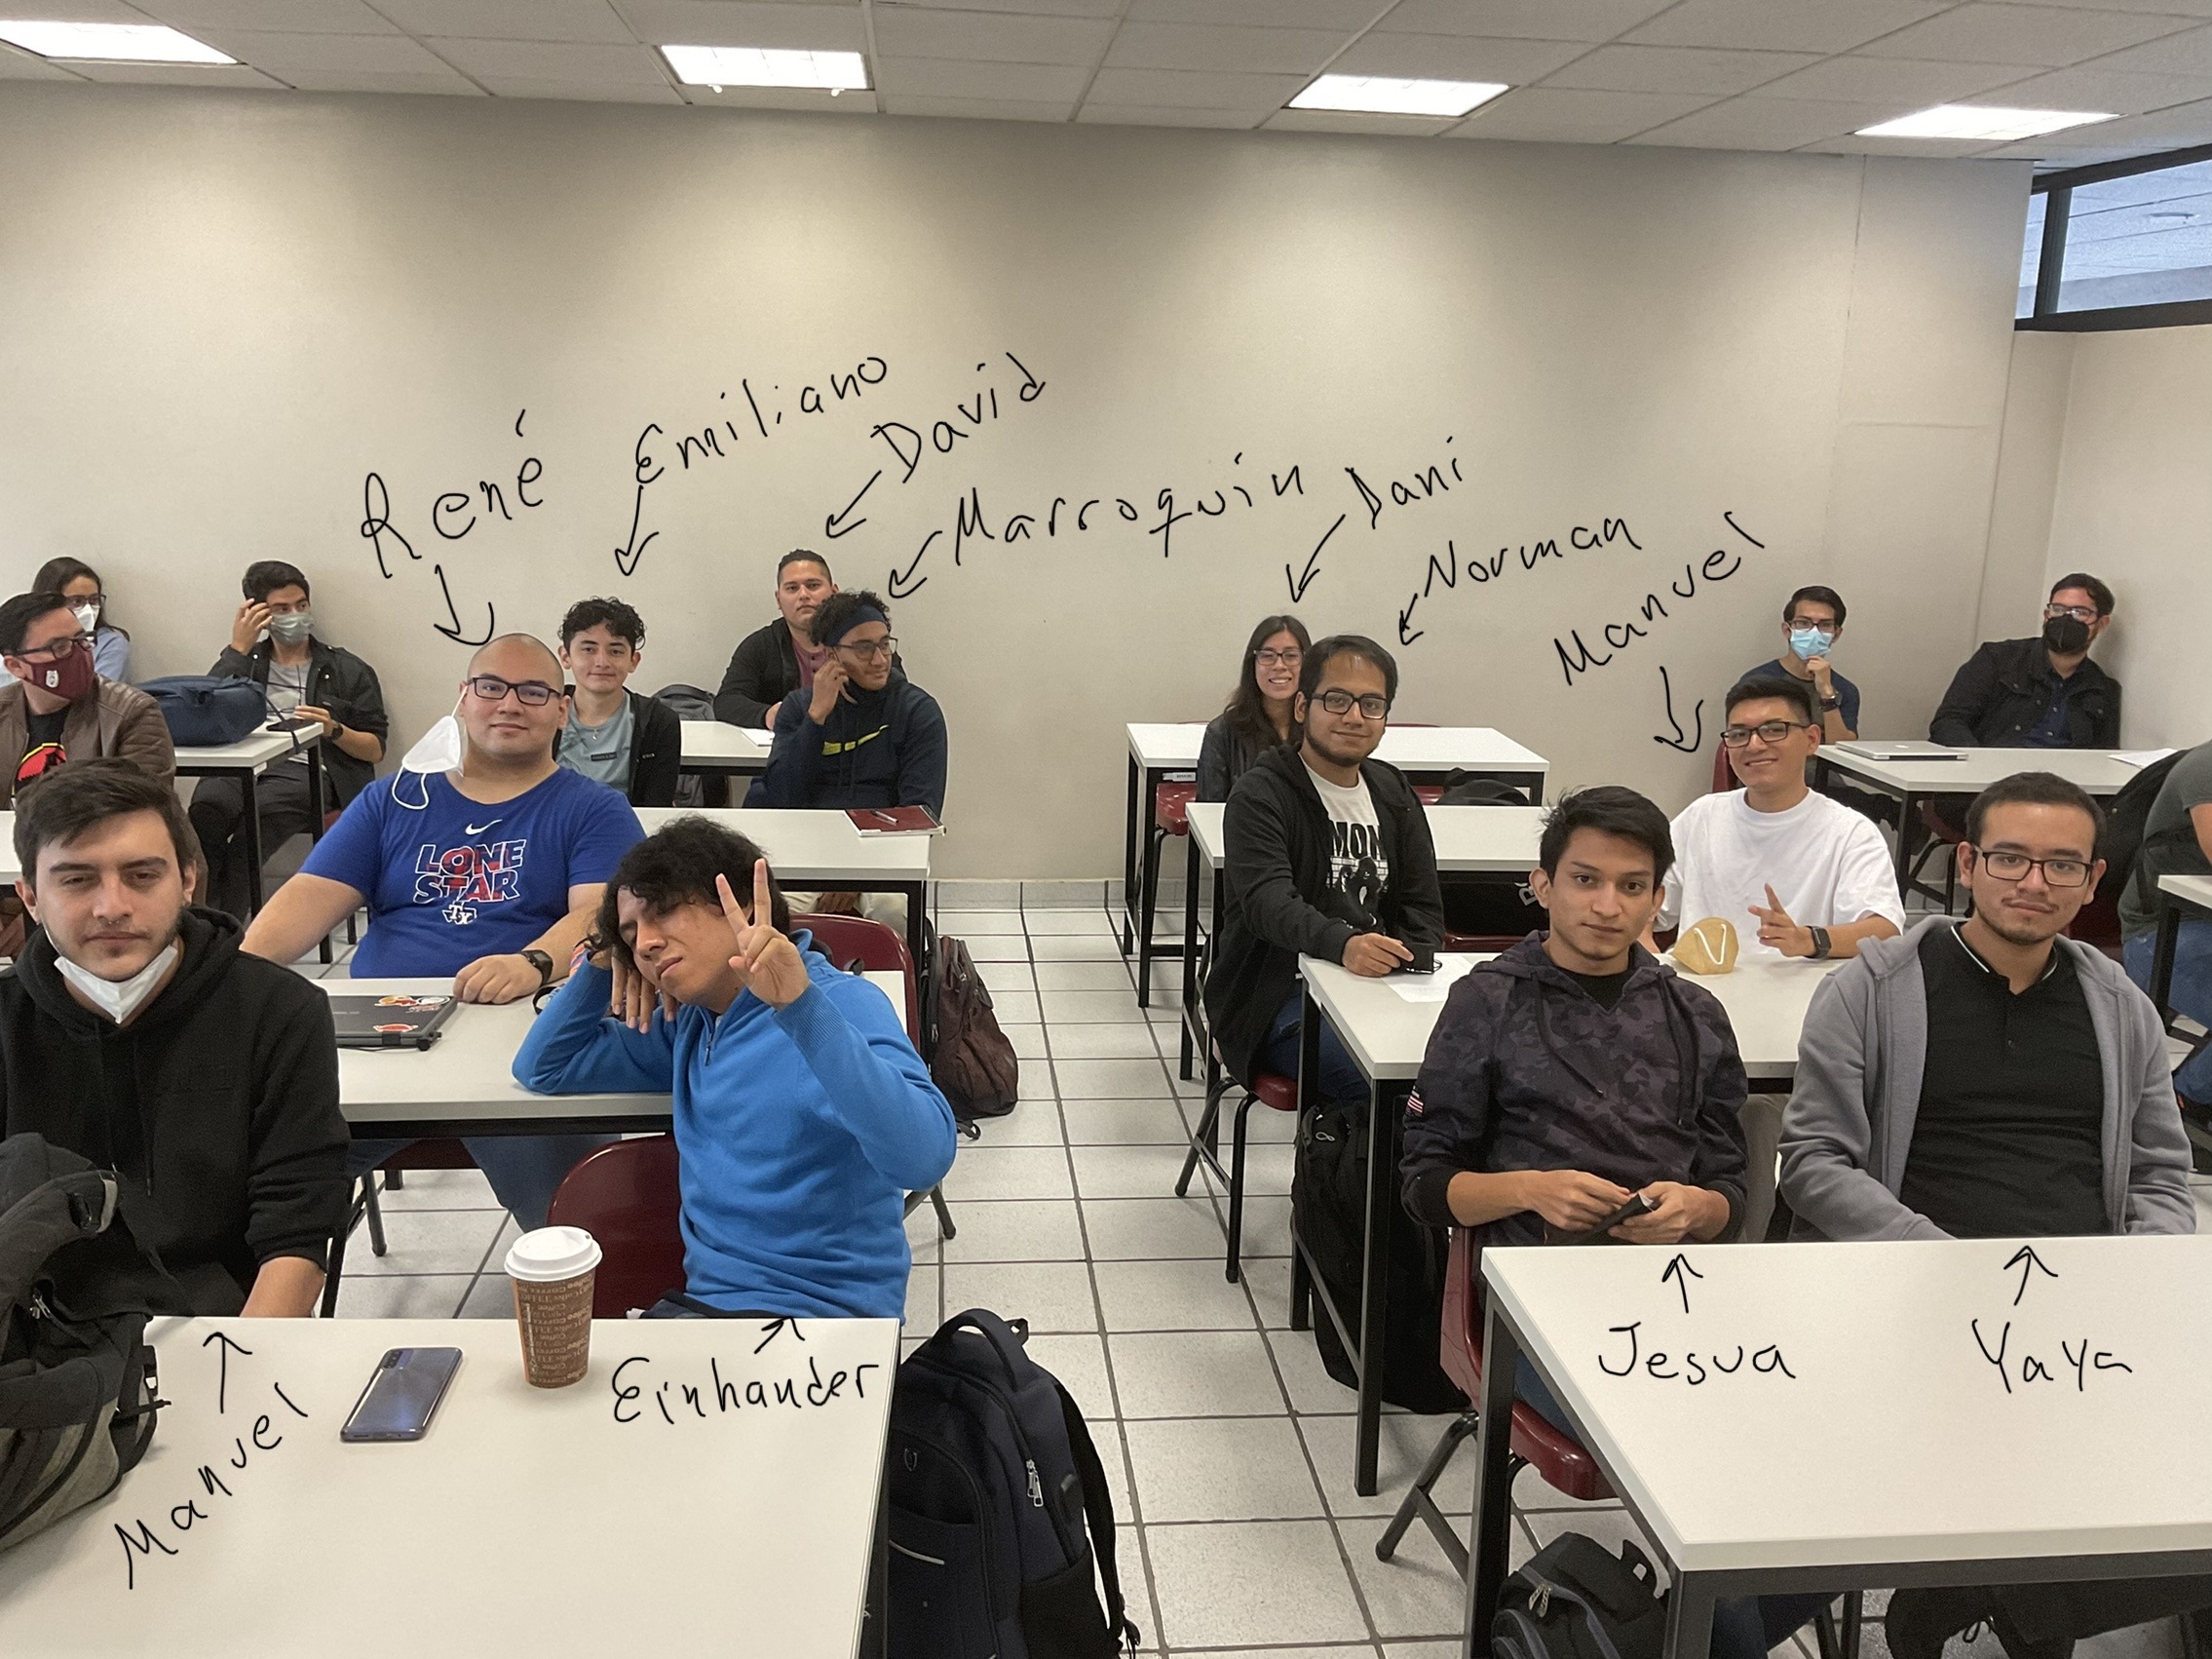 René
Emiliano
David
Marroquin
Dani
Norman
Manuel
LONE
STAR
TX
MON
Manuel
Einhander
Jesua
Yaya